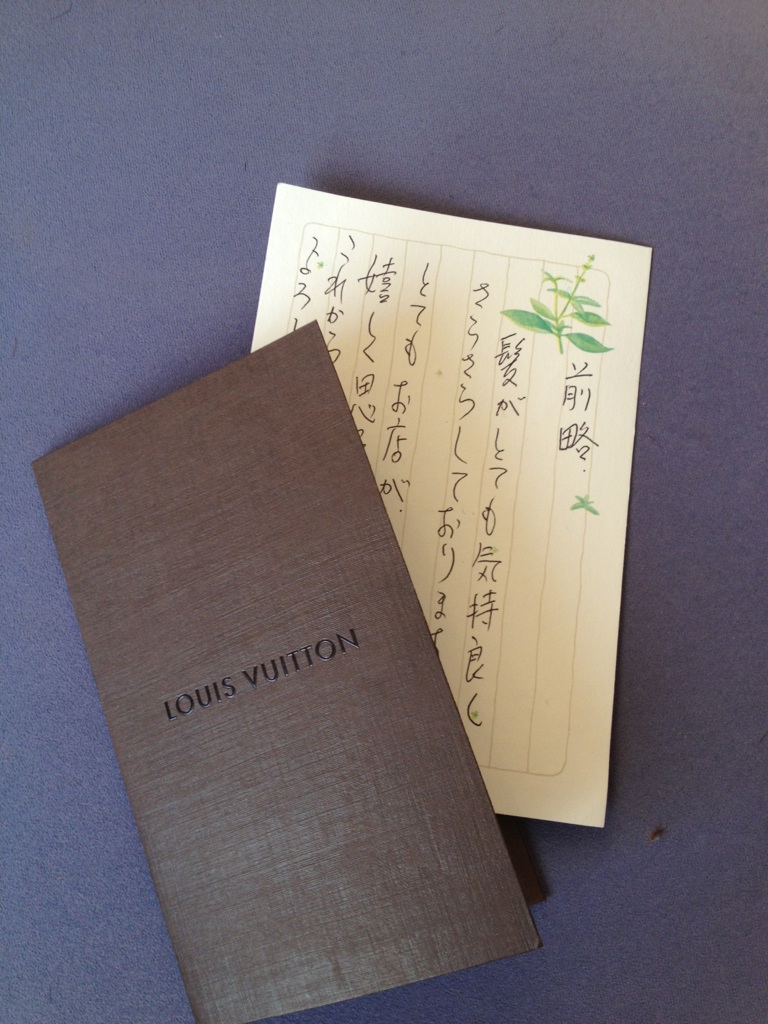 前略.
髪がとても気持良く
さらさらしております
とてもお店が.
嬉しく思
これから
よろし
LOUIS VUITTON